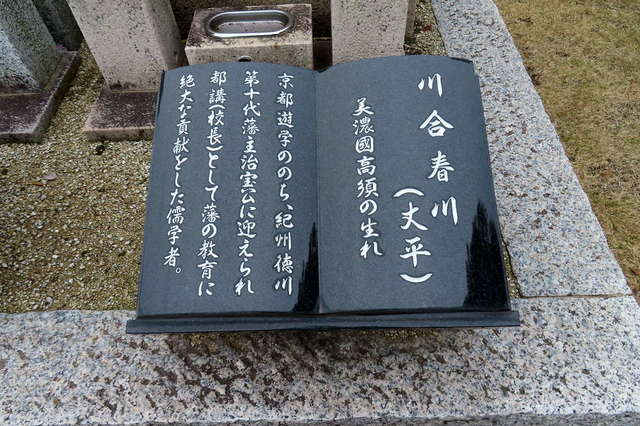 川合春川(丈平)
美濃國高須の生れ
京都遊学ののち、紀州徳川
第十代藩主治宝公に迎えられ
都講(校長)として藩の教育に
絶大な貢献をした儒学者。